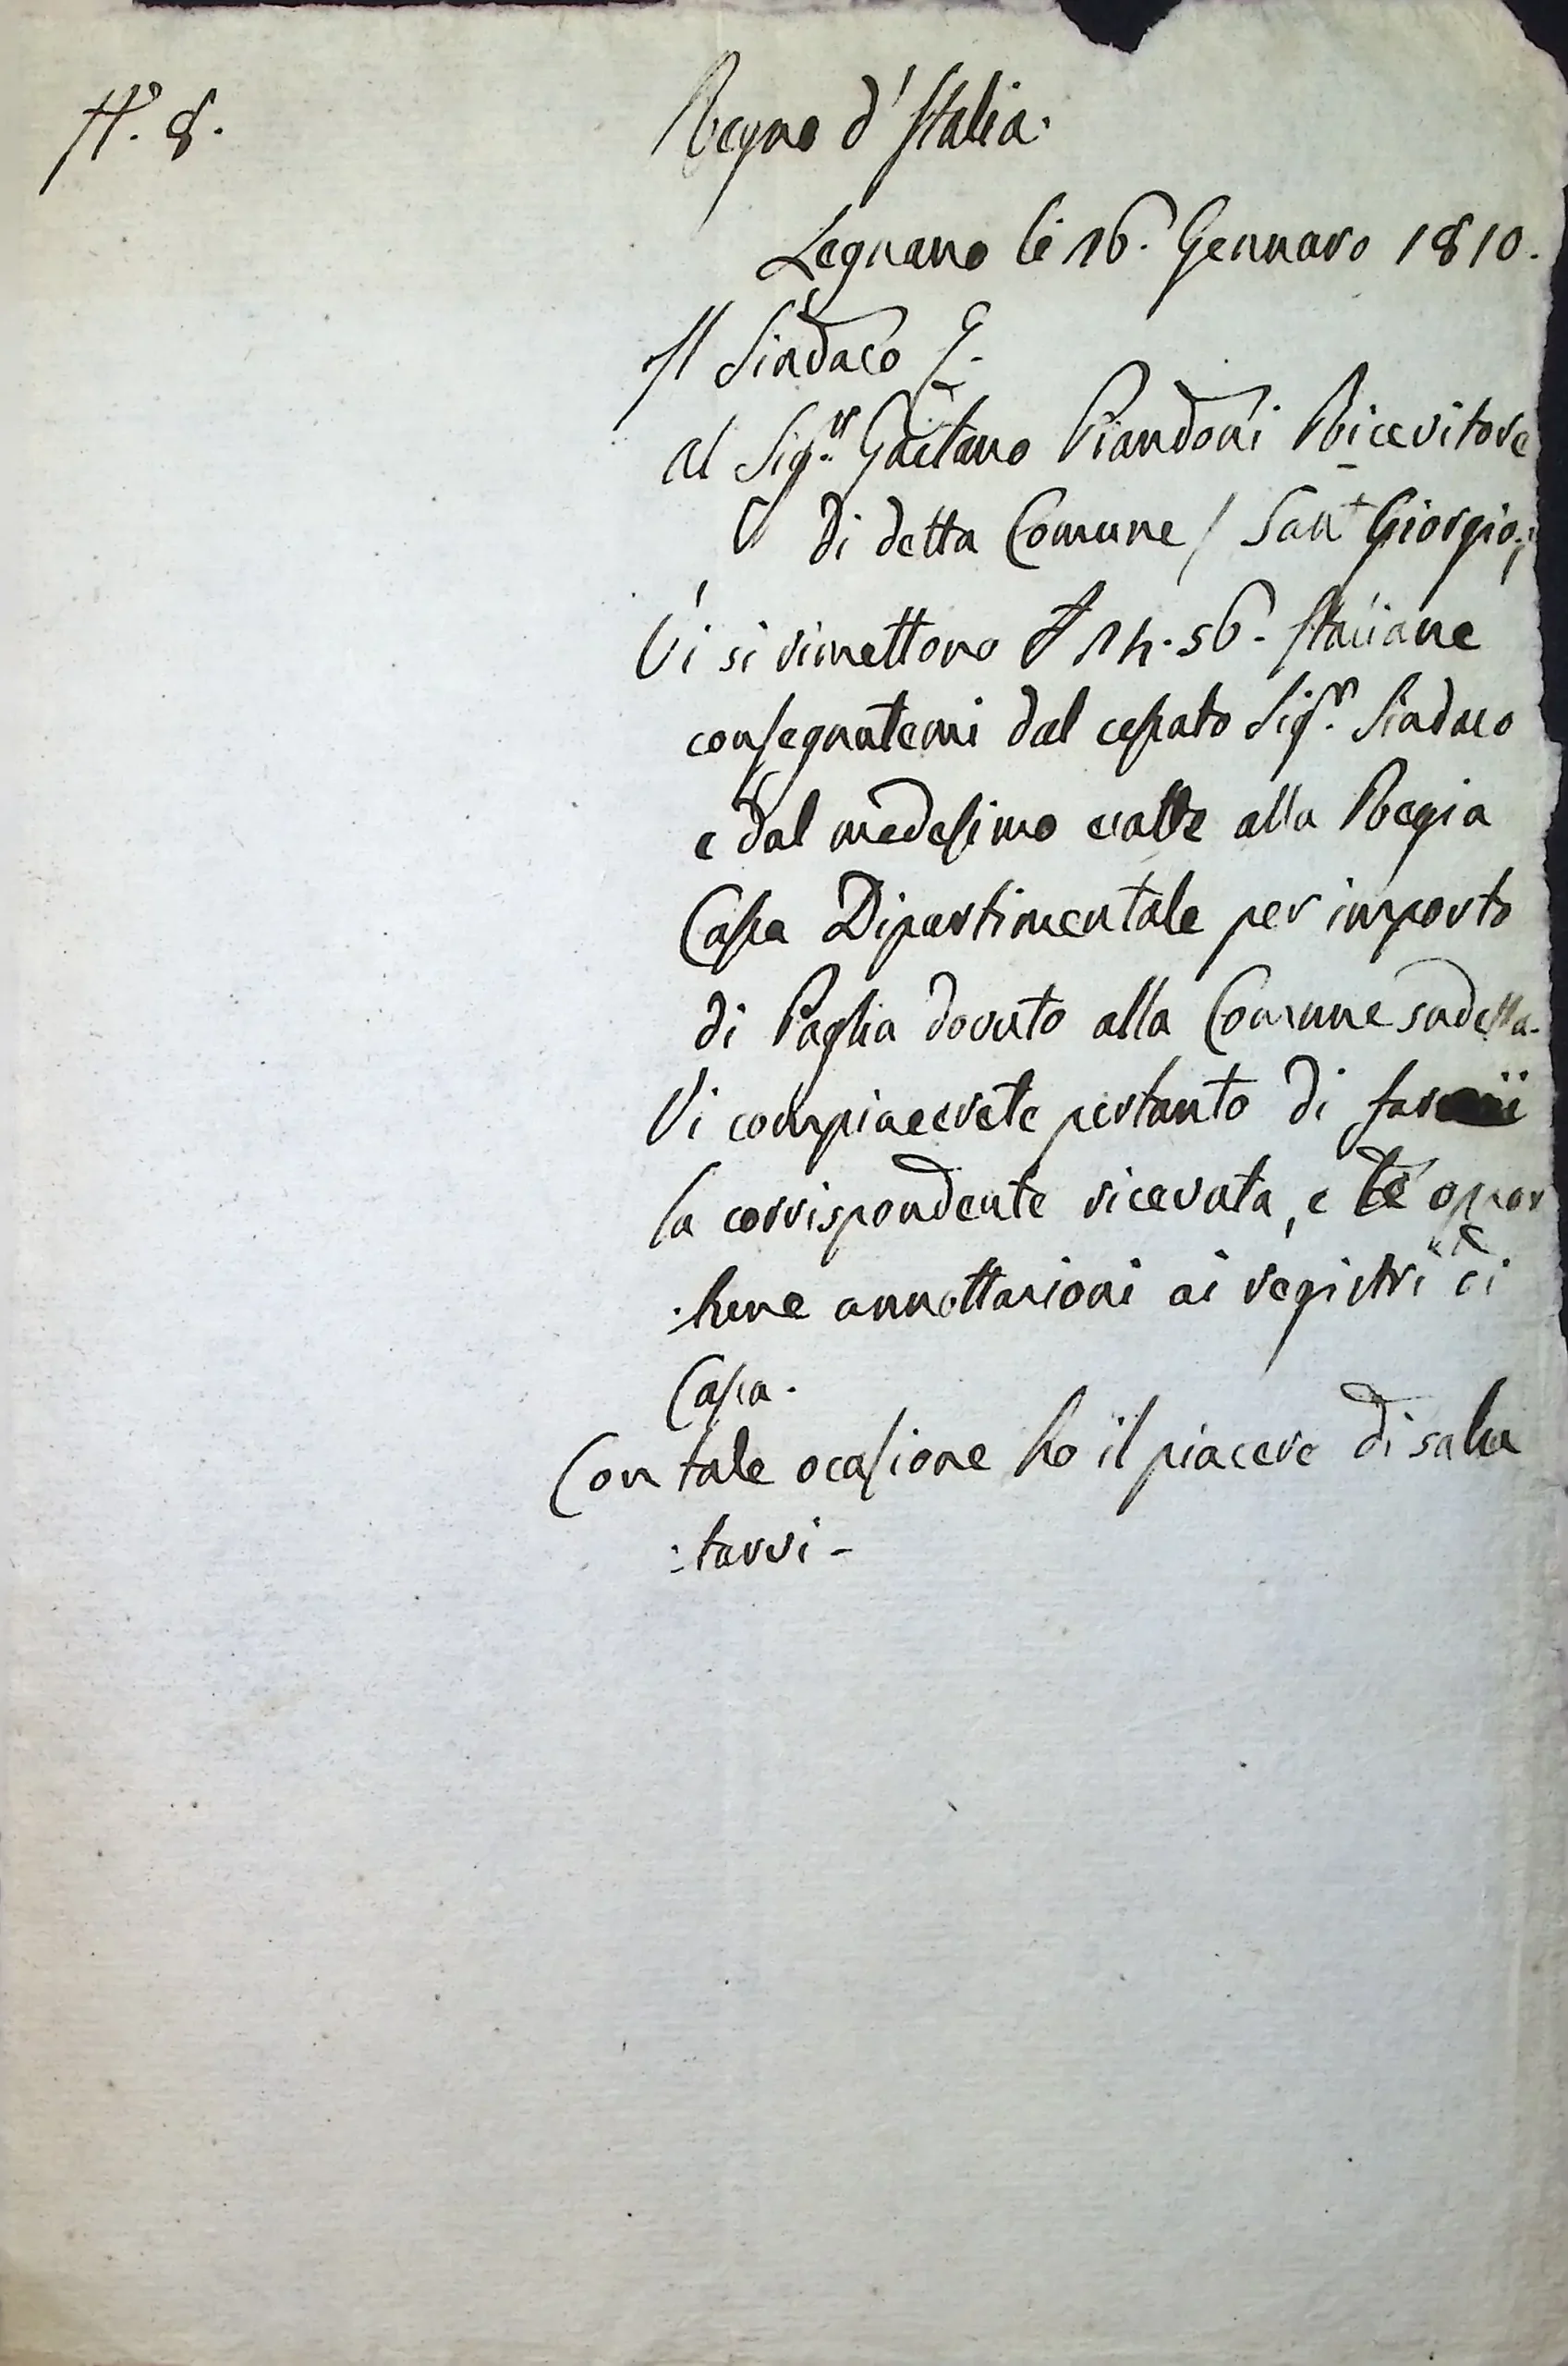 N.° 8.
Regno d'Italia.
Legnano li 16. Gennaro 1810.
Il Sindaco
al Sig.r Gaetano Piandoni Ricevitore
di detta Comune / San Giorgio
Vi si rimettono £ 14.56. Italiane
consegnatemi dal cessato Sig.r Sindaco
e dal medesimo esatte alla Regia
Cassa Dipartimentale per importo
di Paglia dovuto alla Comune sudetta.
Vi compiacerete pertanto di farmi
la corrispondente ricevuta, e le oppor
:tune annottazioni ai registri di
Cassa.
Con tale ocasione ho il piacere di salu
:tarvi -